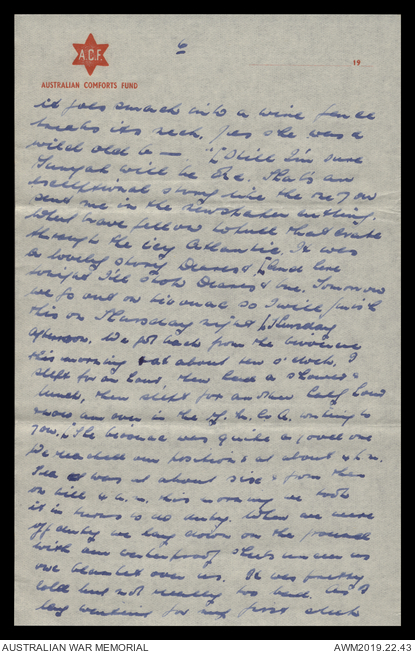 6
A.C.F.
19
AUSTRALIAN COMFORTS FUND
it goes smack into a wire fence
breaks its neck. Yes she was a
wild old b— " [Still I'm sure
will be O.K. That's an
exceptional story like the one you
sent me in the newspaper cutting.
What brave fellow to
through the icy Atlantic. It was
a lovely story Dearest. [And here
tonight I'll stop Dearest one. Tomorrow
we go out on bivouac so I will finish
this on Thursday night [Thursday
afternoon. We got back from the bivouac
this morning at about ten o'clock. I
slept for an hour, then had a shower &
lunch, then slept for another half hour
now am over in the Y.M.C.A. writing to
you. [The bivouac was quite a good one
We reached our position at about 4 p.m.
Tea was at about six & from then
on till 4 a.m. this morning we took
it in turns to do duty. When we were
off duty we lay down on the ground
with our waterproof sheets under us
one blanket over us. It was pretty
cold but not really too bad. As I
lay waiting for my first
AUSTRALIAN WAR MEMORIAL
AWM2019.22.43